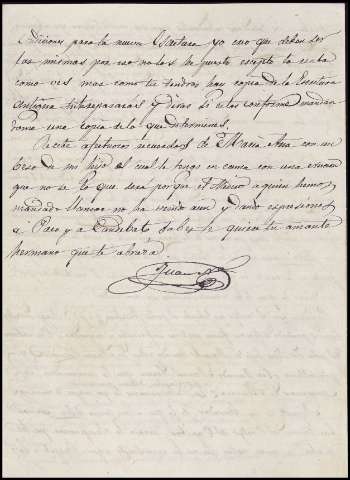 Adiciones para la nueva Escritura yo creo que deben ser
las mismas por eso no las he puesto excepto la sesta
como ves mas como tu tendras hay copia de la Escritura
antigua tu repasaras y diras si estas conforme mandan
dome una copia de lo que determines.
Recibe afectuosos recuerdos de Maria Ana con un
beso de mi hijo el cual le tengo en cama con una
que no se lo que sera porque el Medico a quien hemos
mandado llamar no ha venido aun y dando expresiones
a Paco y a Candelato sabes te quiere tu amante
hermano que te abraza
Juan